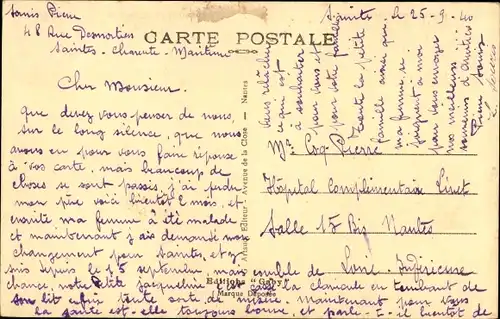 Pierre
48 Rue Desmortiers
Saintes - Charente - Maritime
CARTE POSTALE
Saintes, le 25-9-40
Cher Monsieur.
que devez vous penser de nous,
sur le long silence, que nous
avons eu pour vous faire réponse
à vos carte, mais beaucoup de
choses se sont passés, j'ai perdu
mon père voici bientôt 2 mois, et
ensuite ma femme à été malade
et maintenant j'ai demandé mon
changement pour Saintes, et y
suis depuis le 15 septembre, mais comble de
chance, notre petite Jacqueline s'est cassé la clavicule en tombant de
son lit enfin toute sorte de misère. Maintenant pour vous
la santé est-elle toujours bonne, et il bientôt de
vous relâcher
ce qui est
à souhaiter
pour vous et
pour votre famille
Toute la petite
famille ainsi que
ma femme se
joignent à moi
pour vous envoyer
nos meilleurs
d'amitiés
Mr Coq Pierre
Hôpital Complémentaire Livet
Salle 15 Bis Nantes
Loire-Inférieure
Editeur - Avenue de la Close - Nantes
Editions "Gaby"
(Marque Déposée)